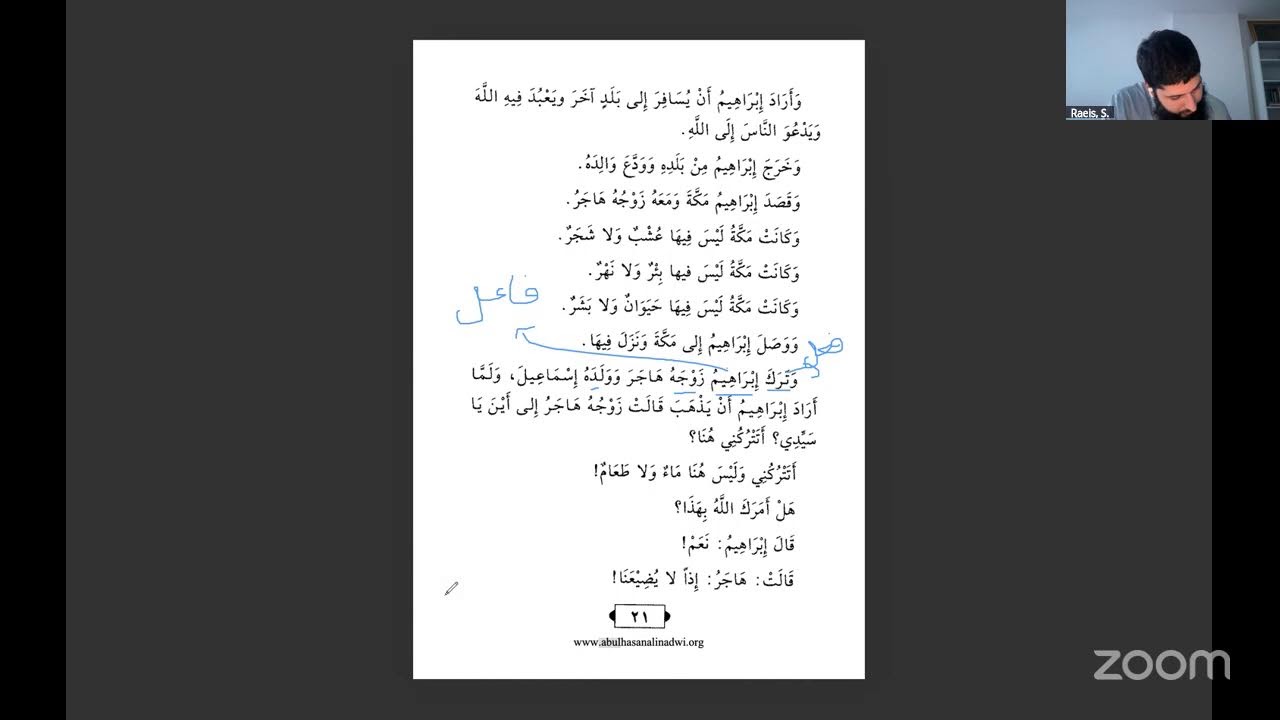 وَأَرَادَ إِبْرَاهِيمُ أَنْ يُسَافِرَ إِلى بَلَدٍ آخَرَ ويَعْبُدَ فِيهِ اللَّهَ
وَيَدْعُوَ النَّاسَ إِلَى اللَّهِ.
وَخَرَجَ إِبْرَاهِيمُ مِنْ بَلَدِهِ وَوَدَّعَ وَالِدَهُ.
وَقَصَدَ إِبْرَاهِيمُ مَكَّةَ وَمَعَهُ زَوْجُهُ هَاجَرُ.
وَكَانَتْ مَكَّةُ لَيْسَ فِيهَا عُشْبٌ وَلا شَجَرٌ.
وَكَانَتْ مَكَّةُ لَيْسَ فيها بِئْرٌ وَلا نَهْرٌ.
وَكَانَتْ مَكَّةُ لَيْسَ فِيهَا حَيَوَانٌ وَلا بَشَرٌ.
فاعل
وَوَصَلَ إِبْرَاهِيمُ إِلى مَكَّةَ وَنَزَلَ فِيهَا.
فعل
وَتَرَكَ إِبْرَاهِيمُ زَوْجَهُ هَاجَرَ وَوَلَدَهُ إِسْمَاعِيلَ، وَلَمَّا
أَرَادَ إِبْرَاهِيمُ أَنْ يَذْهَبَ قَالَتْ زَوْجُهُ هَاجَرُ إِلى أَيْنَ يَا
سَيِّدِي؟ أَتَتْرُكُنِي هُنَا؟
أَتَتْرُكُنِي وَلَيْسَ هُنَا مَاءٌ وَلا طَعَامٌ!
هَلْ أَمَرَكَ اللَّهُ بِهَذَا؟
قَالَ إِبْرَاهِيمُ: نَعَمْ!
قَالَتْ: هَاجَرُ: إِذاً لا يُضِيْعَنَا!
٢١
www.abulhasanalinadwi.org
Raeis, S.
zoom